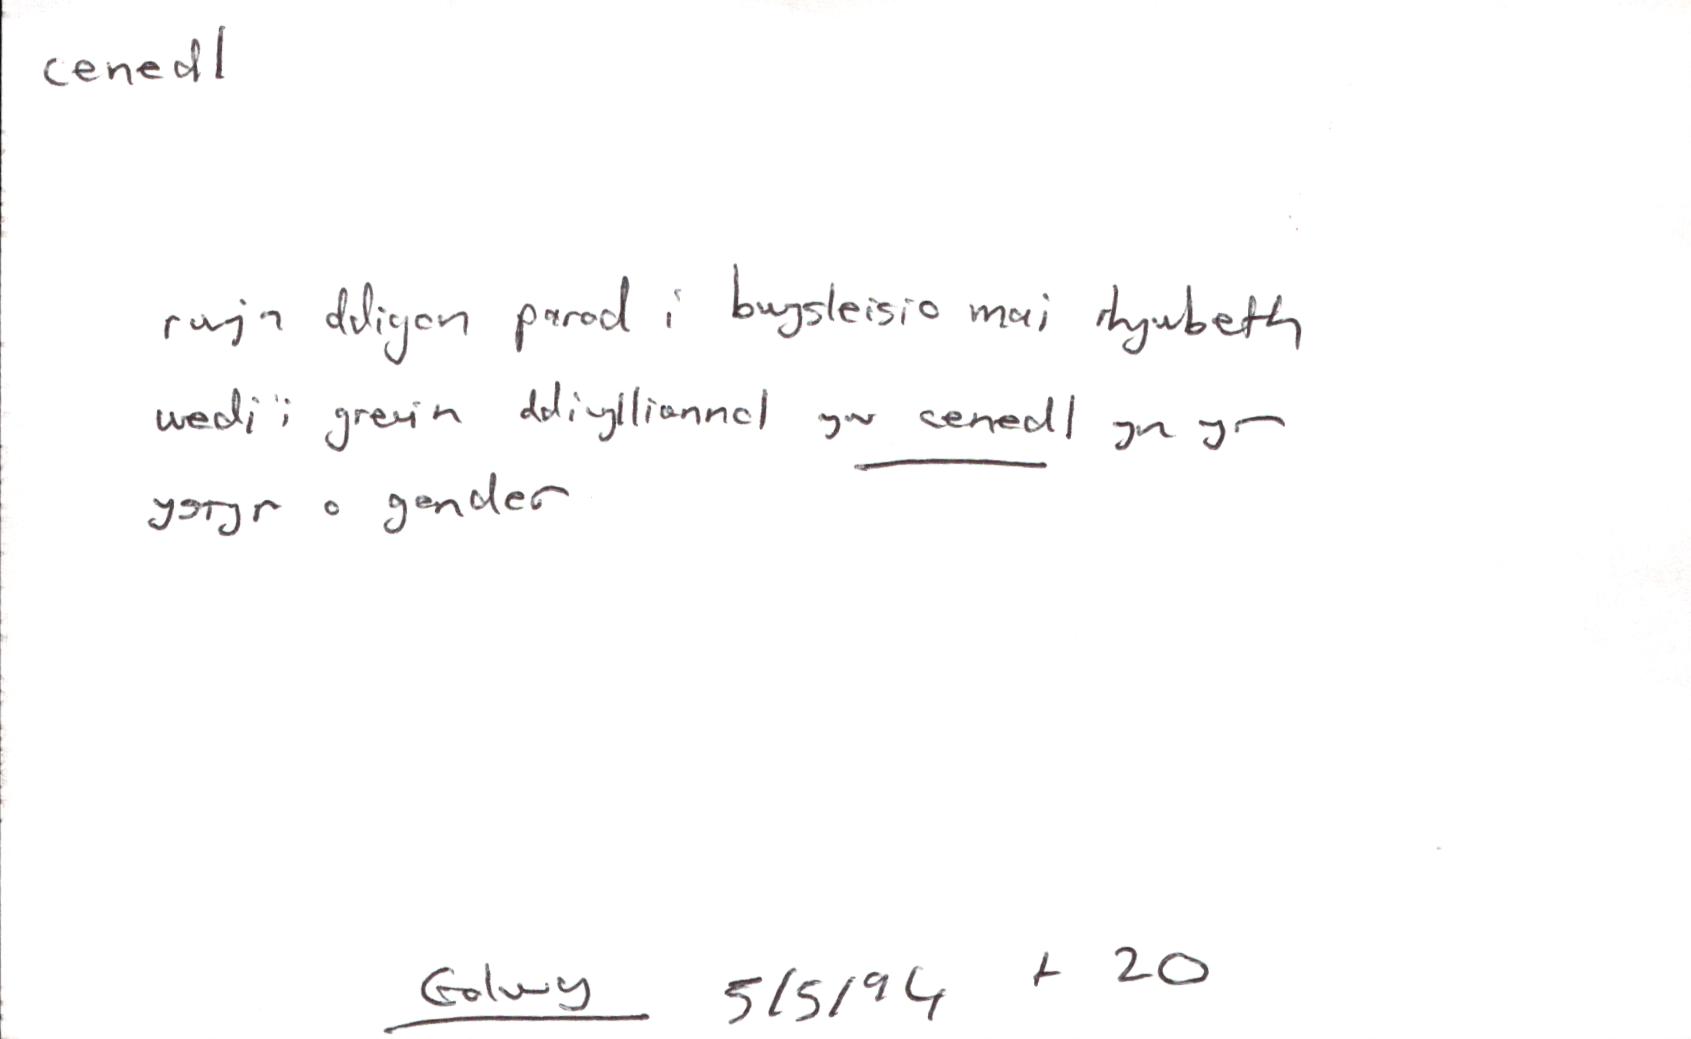 cenedl
rwy'n ddigon parod i bwysleisio mai rhywbeth
wedi'i greu'n ddiwylliannol yw cenedl yn yr
ystyr o gender
Golwg 5/5/94 t 20